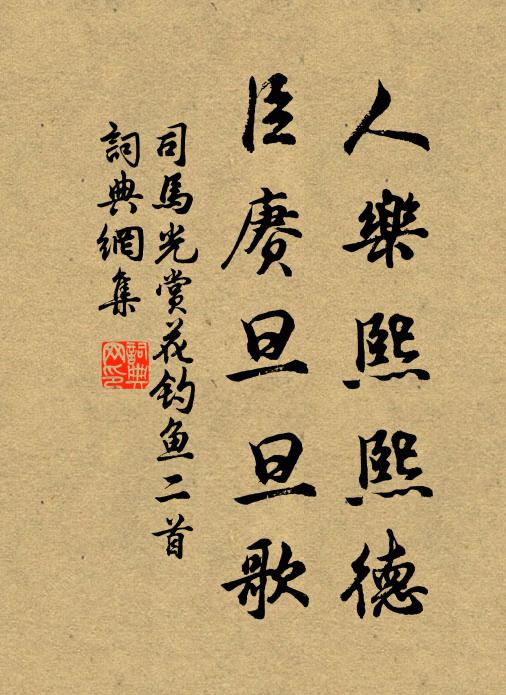 人樂熙熙德
臣賡旦旦歌
司馬光賞花釣魚二首
詞典網集
詞典网印